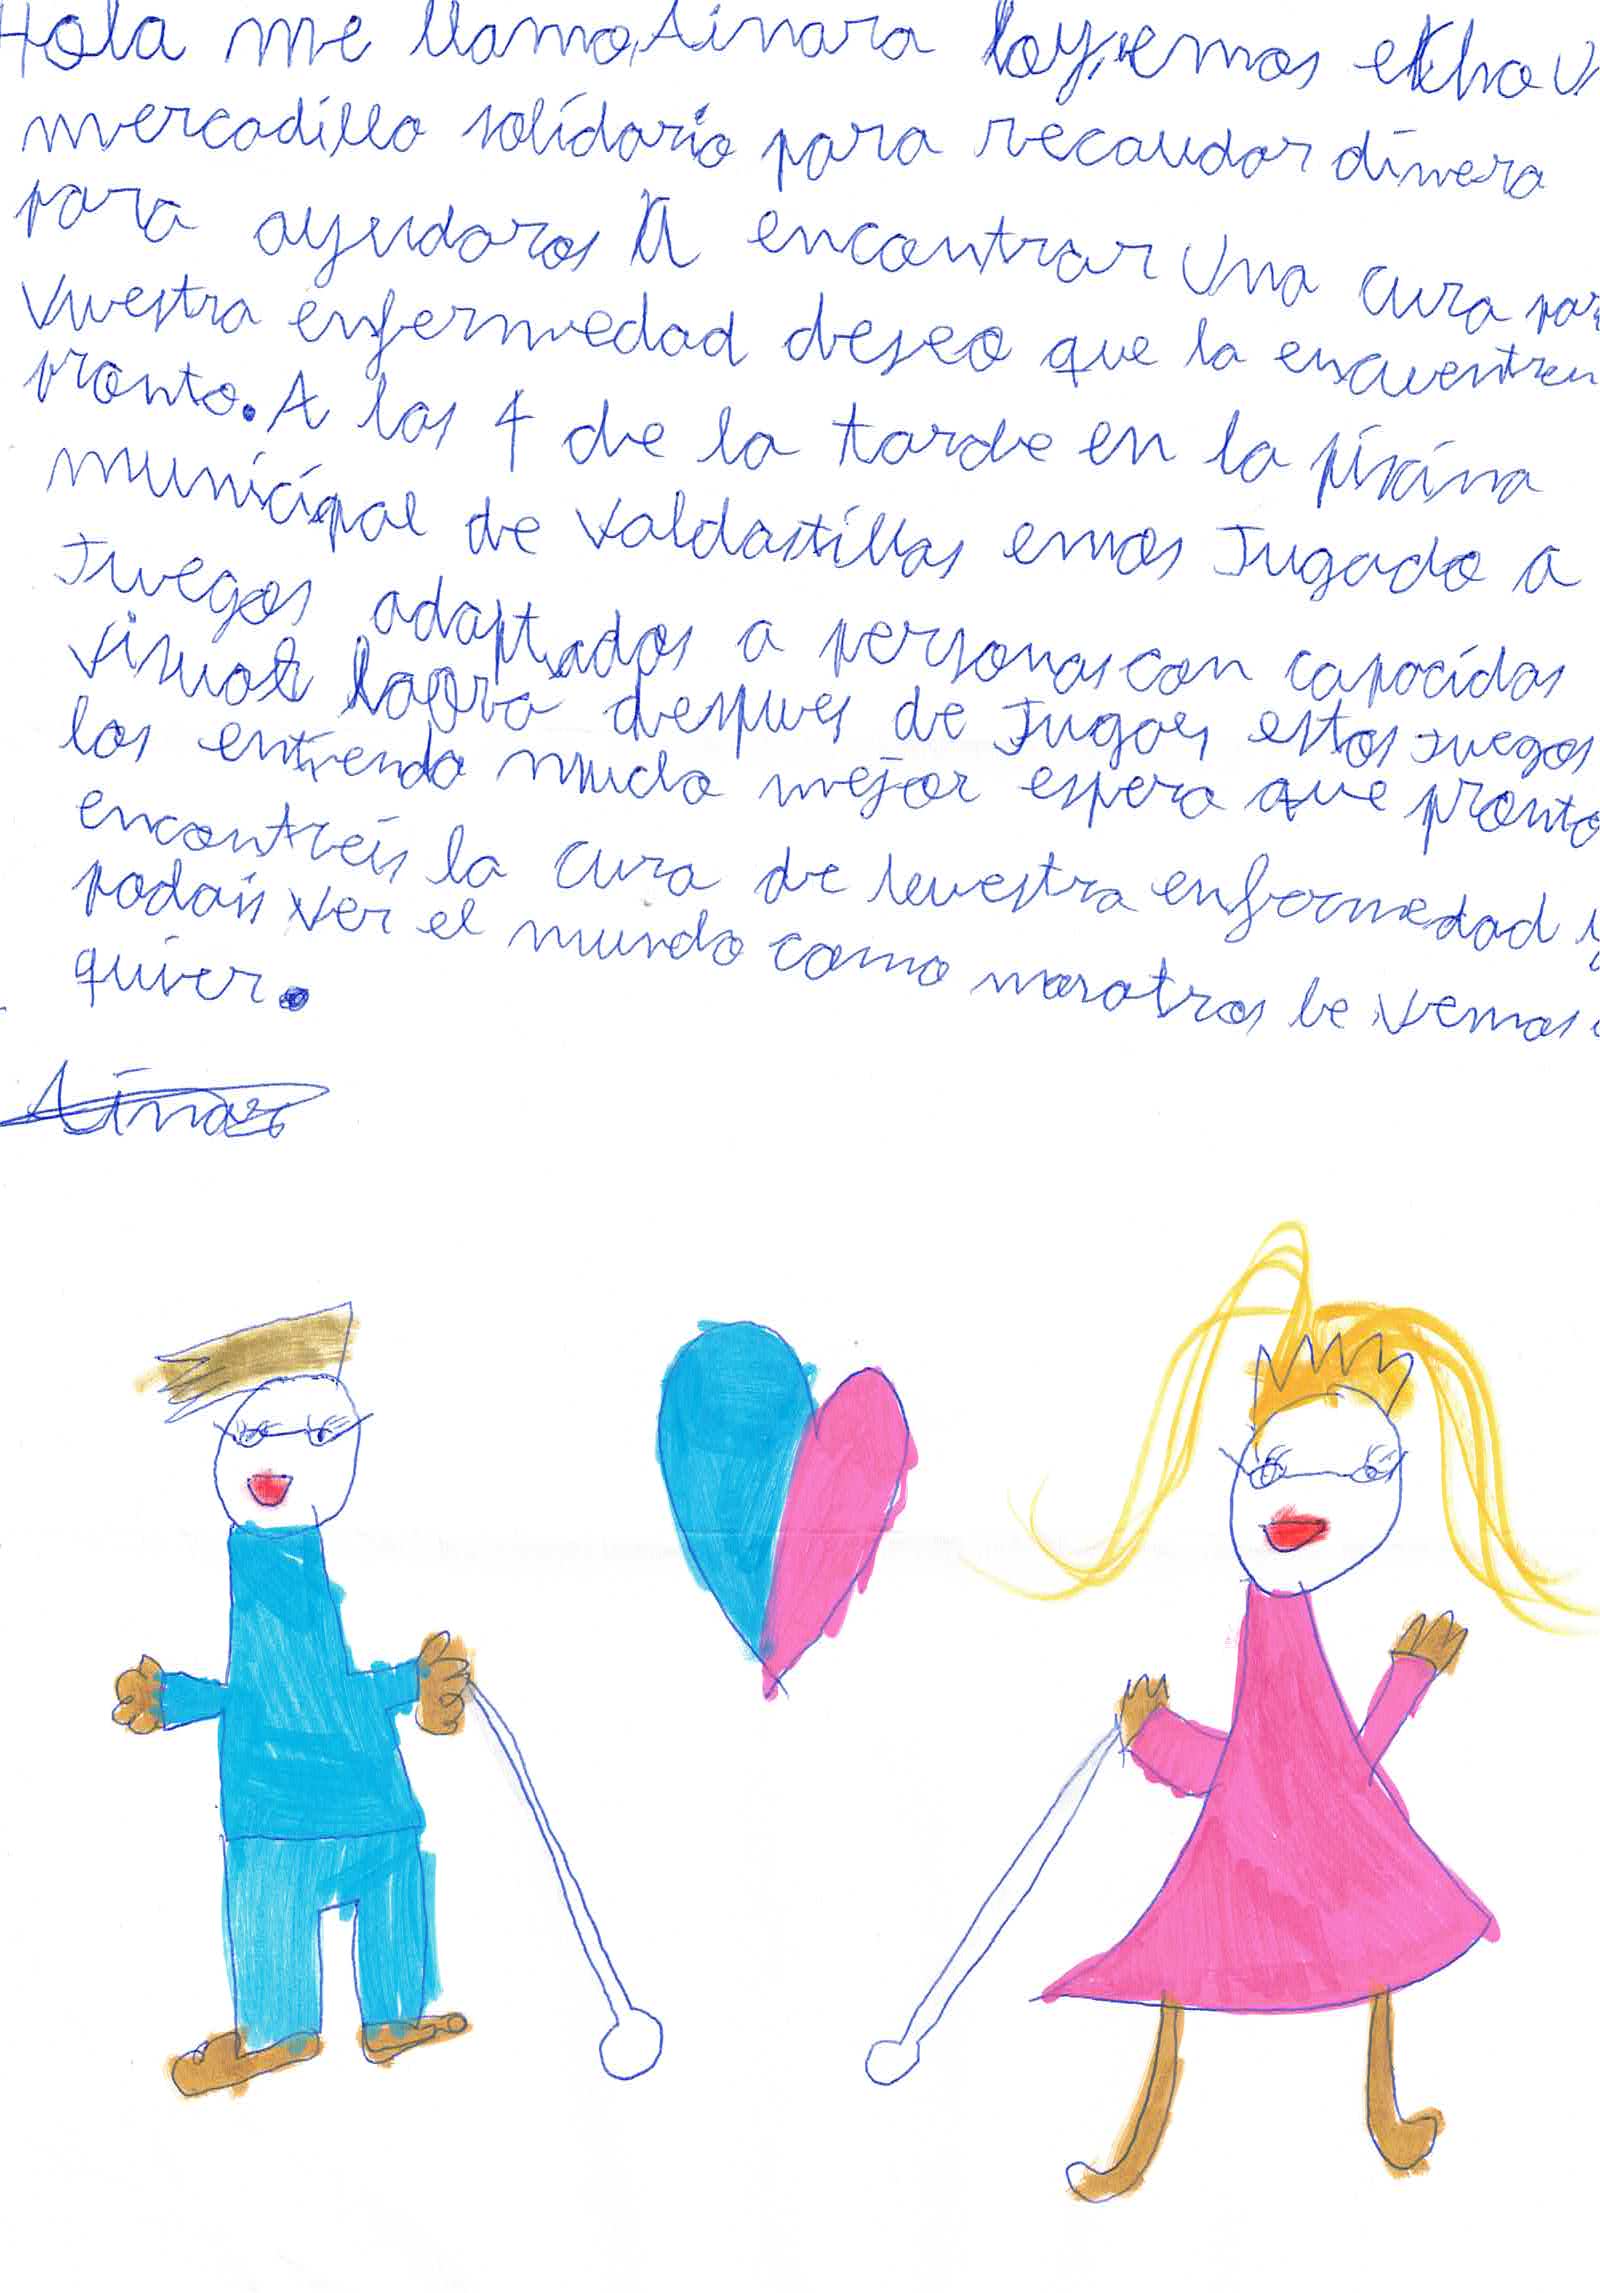 Hola me llamo Ainara hoy emos ekho U
mercadillo solidario para recaudar dinero
para ayudaros A encontrar Una cura par
vuestra enfermedad deseo que la encuentren
pronto. A las 4 de la tarde en la piscina
municipal de Valdastillas emos Jugado a
Juegos adaptados a personas con capacidas
visual haora despues de Jugar estos juegos
los entiendo mucho mejor espero que pronto
encontreis la cura de vuestra enfermedad y
podais ver el mundo como nosotros le vemos
quiver.
Ainara